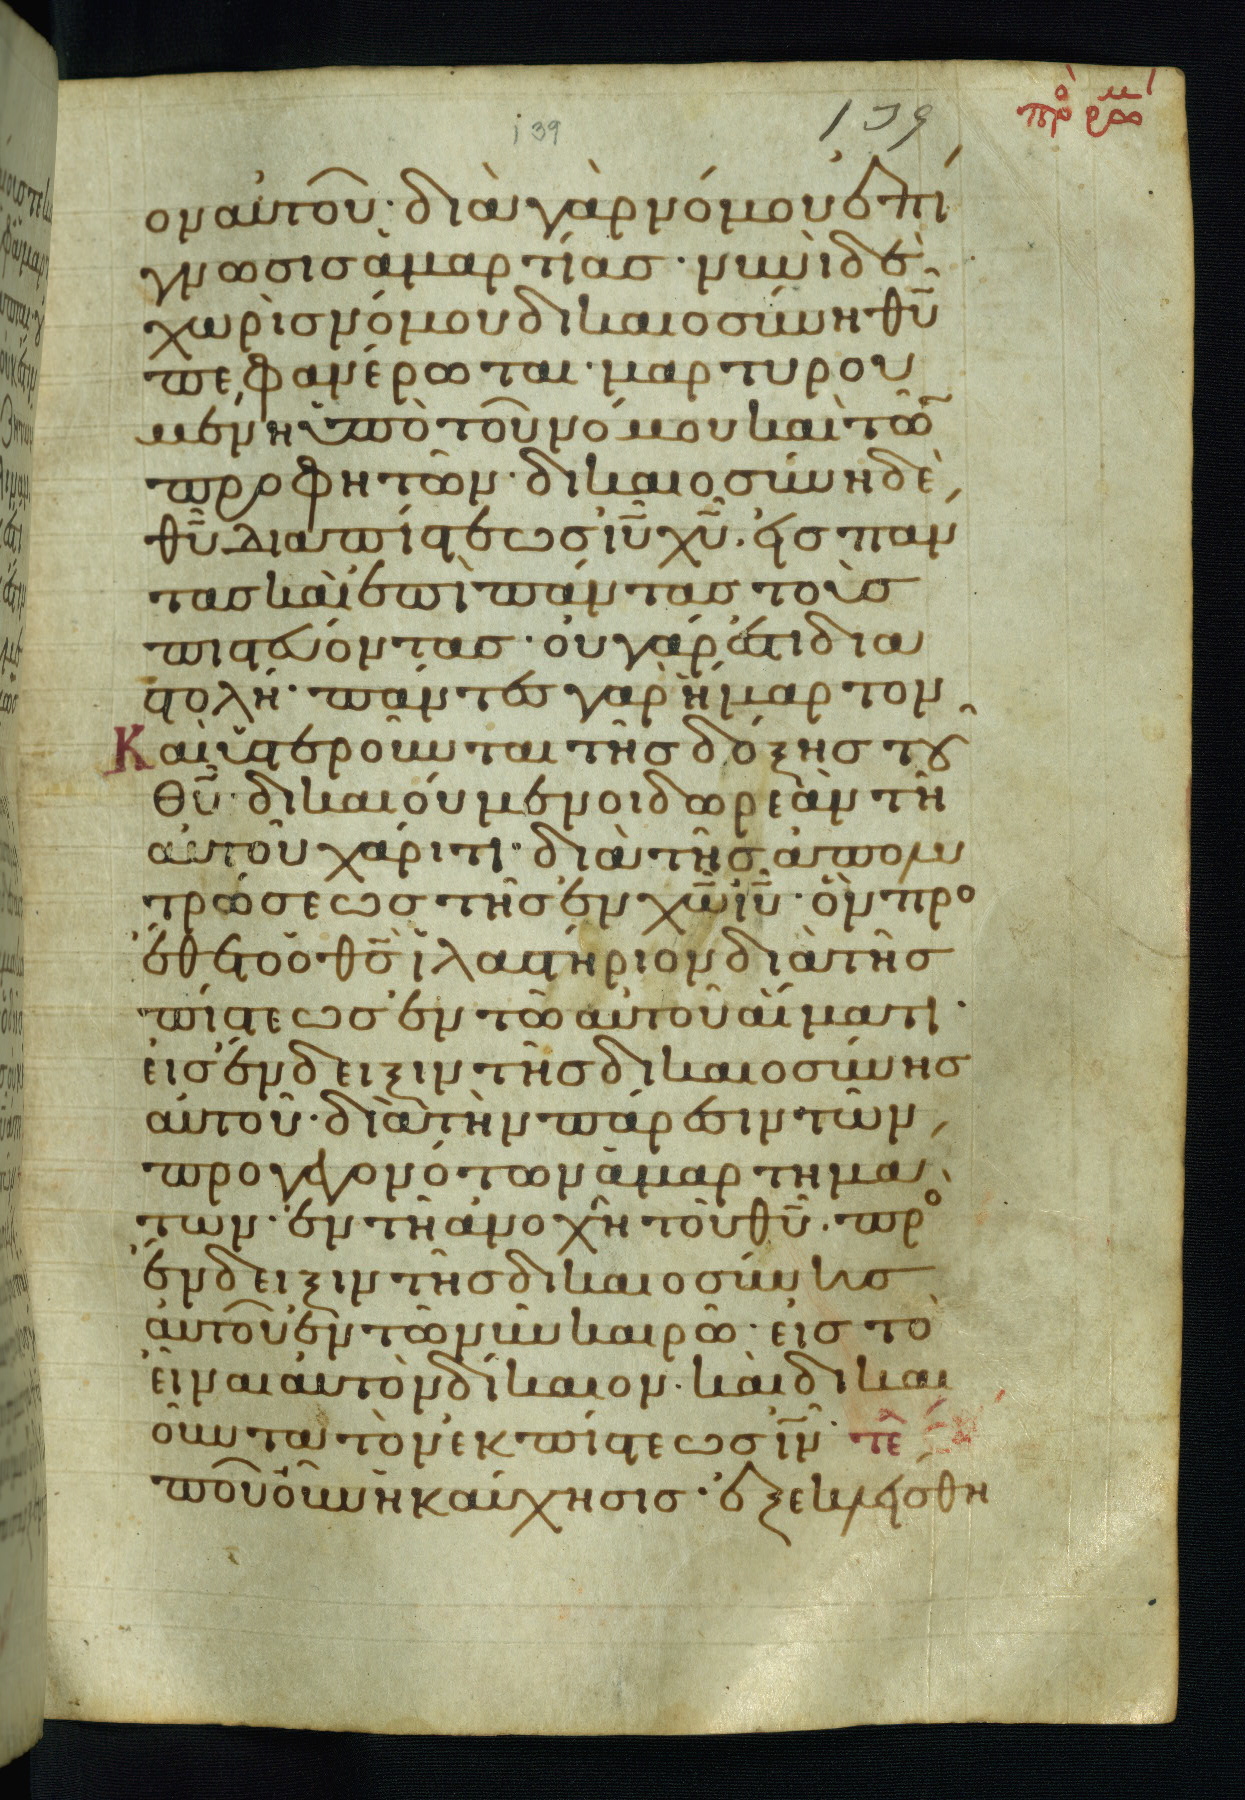 139 139 πρὸ ρωμ
ον αὐτοῦ· διὰ γὰρ νόμου ἐπί
γνωσις ἁμαρτίας· νυνὶ δὲ
χωρὶς νόμου δικαιοσύνη θ̅υ̅
πεφανέρωται· μαρτυρου
μένη ὑπὸ τοῦ νόμου καὶ τῶ̅
προφητῶν· δικαιοσύνη δὲ
θ̅υ̅ δια πίστεως ι̅υ̅ χ̅υ̅· εἰς πάν
τας καὶ ἐπὶ πάντας τοὺς
πιστεύοντας· οὐ γάρ ἐστι δια
στολή· πάντες γαρ ἥμαρτον
Καὶ ὑστεροῦνται τῆς δόξης τοῦ
θ̅υ̅· δικαιούμενοι δωρεὰν τῆ
αὐτοῦ χάριτι· διὰ τῆς ἀπολυ
τρώσεως τῆς ἐν χ̅ω̅ ι̅υ̅· ὃν προ
έθετο ὁ θ̅ς̅ ἱλαστήριον διὰ τῆς
πίστεως ἐν τῶ αὐτοῦ αἵματι·
εἰς ἔνδειξιν τῆς δικαιοσύνης
αὐτοῦ· διὰ τὴν πάρεσιν τῶν
προγεγονότων ἁμαρτημα
των· ἐν τῆ ἀνοχῆ τοῦ θ̅υ̅· πρὸ
ἔνδειξιν τῆς δικαιοσύνης
αὐτοῦ ἐν τῶ νῦν καιρῶ· εἰς τὸ
εἶναι αὐτὸν δίκαιον· καὶ δικαι
οῦντα τὸν ἐκ πίστεως ι̅ν̅· τε
ποῦ οὖν ἡ καύχησις· ἐξεκλείσθη